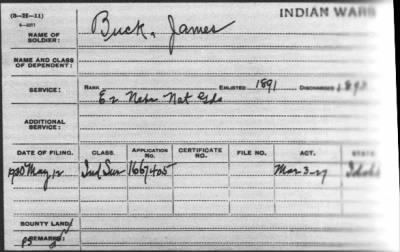 (3-22-11)
6-2071
INDIAN WARS
NAME OF SOLDIER: Buck, James
NAME AND CLASS OF DEPENDENT:
SERVICE: RANK ENLISTED 1891 DISCHARGED 189
Ez Nebr Nat Gds
ADDITIONAL SERVICE:
DATE OF FILING. CLASS. APPLICATION NO. CERTIFICATE NO. FILE NO. ACT. STATE
1930 May 12 Ind Sur 1667405 Mar 3-27 Idaho
BOUNTY LAND:
REMARKS: